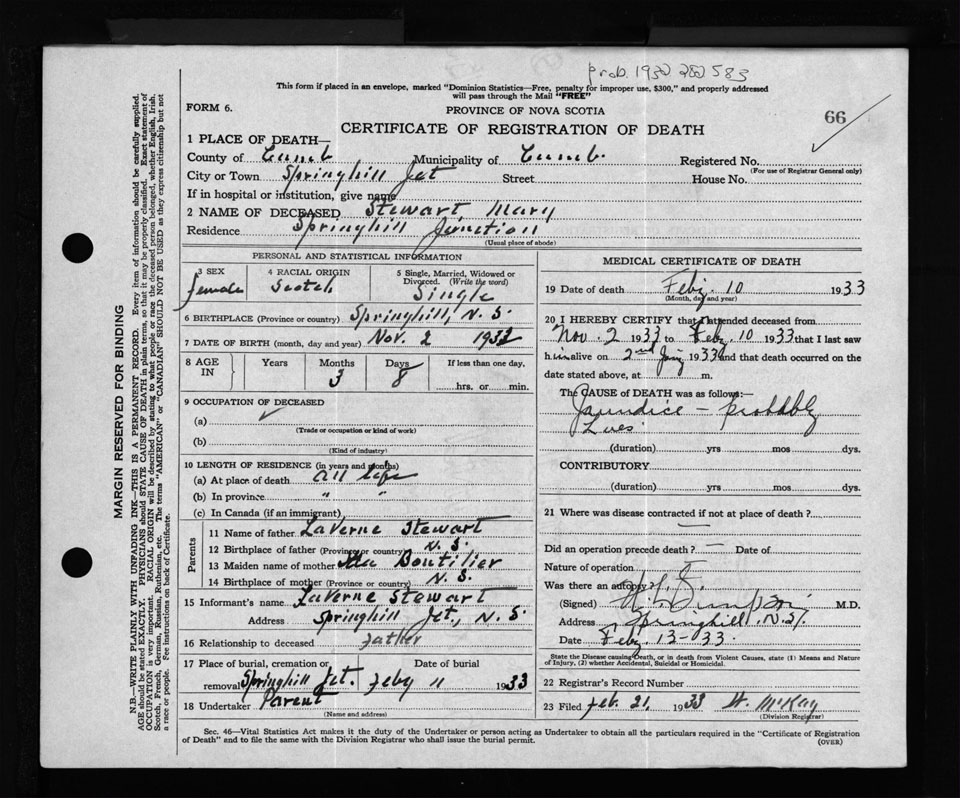 prob. 1932 282 583
This form if placed in an envelope, marked "Dominion Statistics—Free, penalty for improper use, $300," and properly addressed
will pass through the Mail "FREE"
FORM 6.
PROVINCE OF NOVA SCOTIA
66
CERTIFICATE OF REGISTRATION OF DEATH
1 PLACE OF DEATH—
County of Cumb Municipality of Cumb. Registered No.
(For use of Registrar General only)
City or Town Springhill Jct Street House No.
If in hospital or institution, give name
2 NAME OF DECEASED Stewart Mary
Residence Springhill Junction
(Usual place of abode)
PERSONAL AND STATISTICAL INFORMATION
3 SEX 4 RACIAL ORIGIN 5 Single, Married, Widowed or
Divorced. (Write the word)
female Scotch Single
6 BIRTHPLACE (Province or country) Springhill, N. S.
7 DATE OF BIRTH (month, day and year) Nov. 2 1932
8 AGE IN Years Months Days If less than one day,
3 8 hrs. or min.
9 OCCUPATION OF DECEASED
(a)
(Trade or occupation or kind of work)
(b)
(Kind of industry)
10 LENGTH OF RESIDENCE (in years and months)
(a) At place of death all life
(b) In province " "
(c) In Canada (if an immigrant)
Parents
11 Name of father LaVerne Stewart
12 Birthplace of father (Province or country) N. S.
13 Maiden name of mother Boutilier
14 Birthplace of mother (Province or country) N. S.
15 Informant's name LaVerne Stewart
Address Springhill Jct., N. S.
16 Relationship to deceased Father
17 Place of burial, cremation or Date of burial
removal Springhill Jct. Feby 11 1933
18 Undertaker Parent
(Name and address)
MEDICAL CERTIFICATE OF DEATH
19 Date of death Feby. 10 1933
(Month, day and year)
20 I HEREBY CERTIFY that I attended deceased from
Nov. 2 1933 to Feby. 10 1933 that I last saw
h alive on 2nd 1933 and that death occurred on
date stated above, at m.
The CAUSE OF DEATH was as follows:—
Jaundice – probably
Lues
(duration) yrs mos dys.
CONTRIBUTORY
(duration) yrs mos dys.
21 Where was disease contracted if not at place of death ?
—
Did an operation precede death ? — Date of
Nature of operation
Was there an autopsy?
(Signed) M.D.
Address Springhill, N.S.
Date Feby 13-33.
State the Disease causing Death, or in death from Violent Causes, state (1) Means and Nature
of Injury, (2) whether Accidental, Suicidal or Homicidal.
22 Registrar's Record Number
23 Filed Feb. 21. 1933 H. McKay
(Division Registrar)
Sec. 46—Vital Statistics Act makes it the duty of the Undertaker or person acting as Undertaker to obtain all the particulars required in the "Certificate of Registration
of Death" and to file the same with the Division Registrar who shall issue the burial permit.
(OVER)
MARGIN RESERVED FOR BINDING
N.B.—WRITE PLAINLY WITH UNFADING INK—THIS IS A PERMANENT RECORD. Every item of information should be carefully supplied.
AGE should be stated EXACTLY. PHYSICIANS should STATE CAUSE OF DEATH in plain terms, so that it may be properly classified. Exact statement of
OCCUPATION is very important. RACIAL ORIGIN will be described by stating to what people or race the deceased person belonged, whether English, Irish,
Scotch, French, German, Russian, Ruthenian, etc. The terms "AMERICAN" or "CANADIAN" SHOULD NOT BE USED as they express citizenship but not
a race or people. See instructions on back of Certificate.